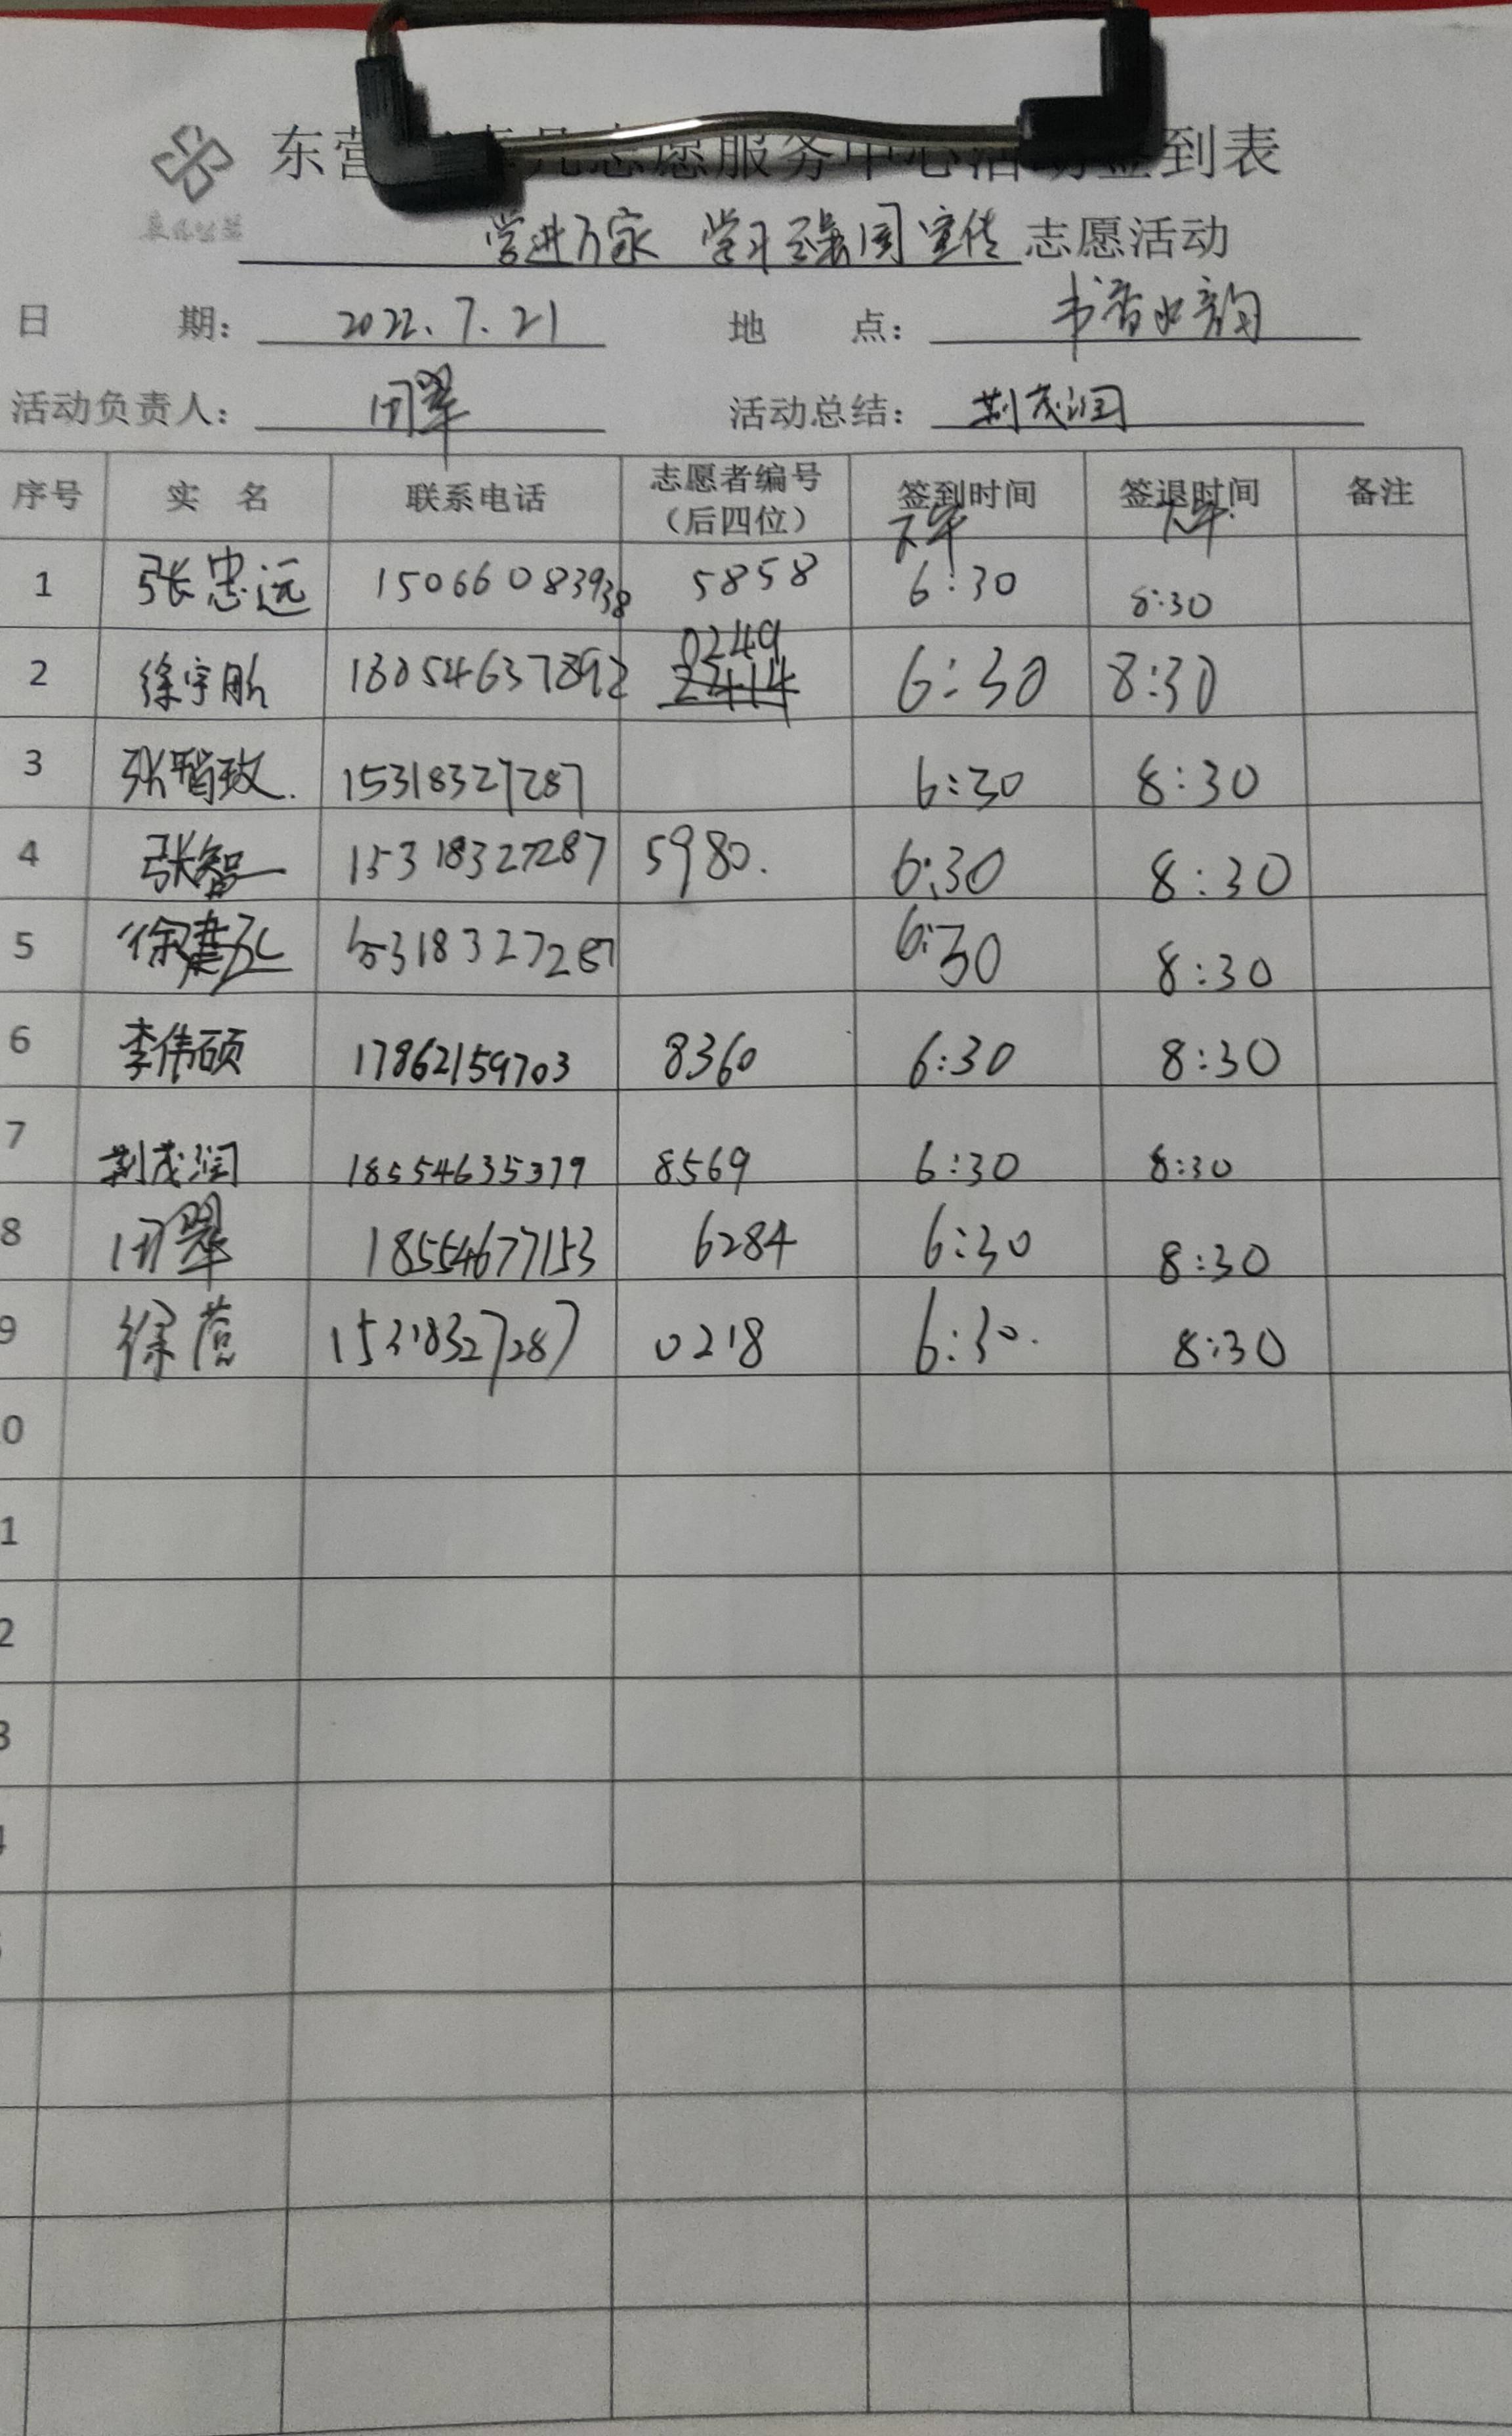 东营 志愿服务中心活动签到表
学进万家 学习强国宣传 志愿活动
日 期: 2022.7.21 地 点: 书香如韵
活动负责人: 田翠 活动总结: 荆茂润
序号 实 名 联系电话 志愿者编号(后四位) 签到时间 下午 签退时间 下午 备注
1 张忠远 15066083938 5858 6:30 8:30
2 徐宇航 18054637892 0249 6:30 8:30
3 张 玫 15318327287 6:30 8:30
4 张智一 15318327287 5980. 6:30 8:30
5 徐 15318327287 6:30 8:30
6 李伟硕 17862159703 8360 6:30 8:30
7 荆茂润 18554635379 8569 6:30 8:30
8 田翠 18554677153 6284 6:30 8:30
9 徐蓓 15318327287 0218 6:30. 8:30
0
1
2
3
4